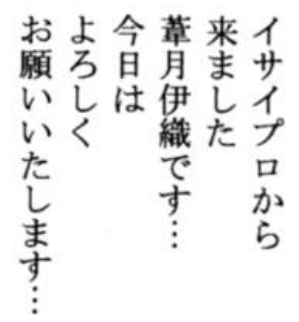 イサイプロから
来ました
葦月伊織です…
今日は
よろしく
お願いいたします…